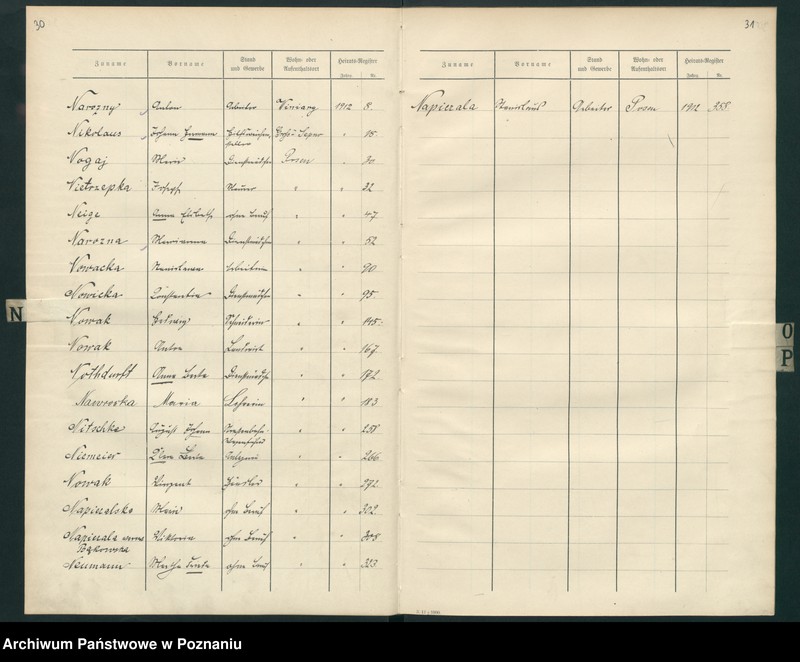 30
Zuname Vorname Stand und Gewerbe Wohn- oder Aufenthaltsort Heirats-Register Jahrg. Nr.
Narozny Anton Arbeiter Winiary 1912 8.
Nikolaus Johann Hermann " 15.
Nogaj Marie Dienstmädchen Posen " 30
Nietrzepka Joseph Maurer " " 32
Neige Anna Elisabeth ohne Beruf " " 47
Narozna Marianna Dienstmädchen " " 52
Nowacka Stanislawa Arbeiterin " " 90
Nowicka Konstantia Dienstmädchen " " 95.
Nowak Hedwig Schneiderin " " 145.
Nowak Anton Landwirt " " 167.
Nothdurft Anna Berta Dienstmädchen " " 172
Nawrocka Maria Lehrerin " " 183
Nitschke August Johann Strassenbahn- " " 258
Niemeier Berta " " 266
Nowak Vinzent Händler " " 272.
Napieralska Marie ohne Beruf " " 302.
Napierala Viktoria ohne Beruf " " 308
Bąkowska
Neumann Martha ohne Beruf " " 323
N
31
Zuname Vorname Stand und Gewerbe Wohn- oder Aufenthaltsort Heirats-Register Jahrg. Nr.
Napierala Stanislaus Arbeiter Posen 1912 358.
O
P
Archiwum Państwowe w Poznaniu